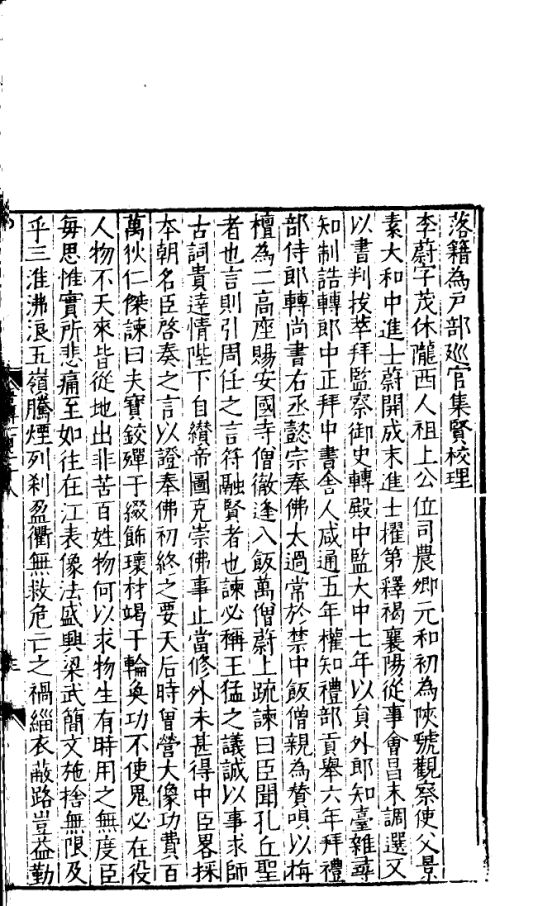 落籍為戸部巡官集賢校理
李蔚字茂休隴西人祖上公位司農卿元和初為陝虢觀察使父景
素大和中進士蔚開成末進士擢第釋褐襄陽從事會昌末調選又
以書判拔萃拜監察御史轉殿中監大中七年以貟外郎知臺雜尋
知制誥轉郎中正拜中書舎人咸通五年權知禮部貢舉六年拜禮
部侍郎轉尚書右丞懿宗奉佛太過常於禁中飯僧親為賛唄以栴
檀為二高座賜安國寺僧徹逢八飯萬僧蔚上疏諫曰臣聞孔丘聖
者也言則引周任之言符融賢者也諫必稱王猛之議誠以事求師
古詞貴達情陛下自纉帝圖克崇佛事止當修外未甚得中臣畧採
本朝名臣啓奏之言以證奉佛初終之要天后時曽營大像功費百
萬狄仁傑諫曰夫寶鉸殫于綴飾瓌材竭于輪奐功不使鬼必在役
人物不天來皆從地出非苦百姓物何以求物生有時用之無度臣
每思惟實所悲痛至如往在江表像法盛興梁武簡文施捨無限及
乎三淮沸浪五嶺騰煙列刹盈衢無救危亡之禍緇衣蔽路豈益勤